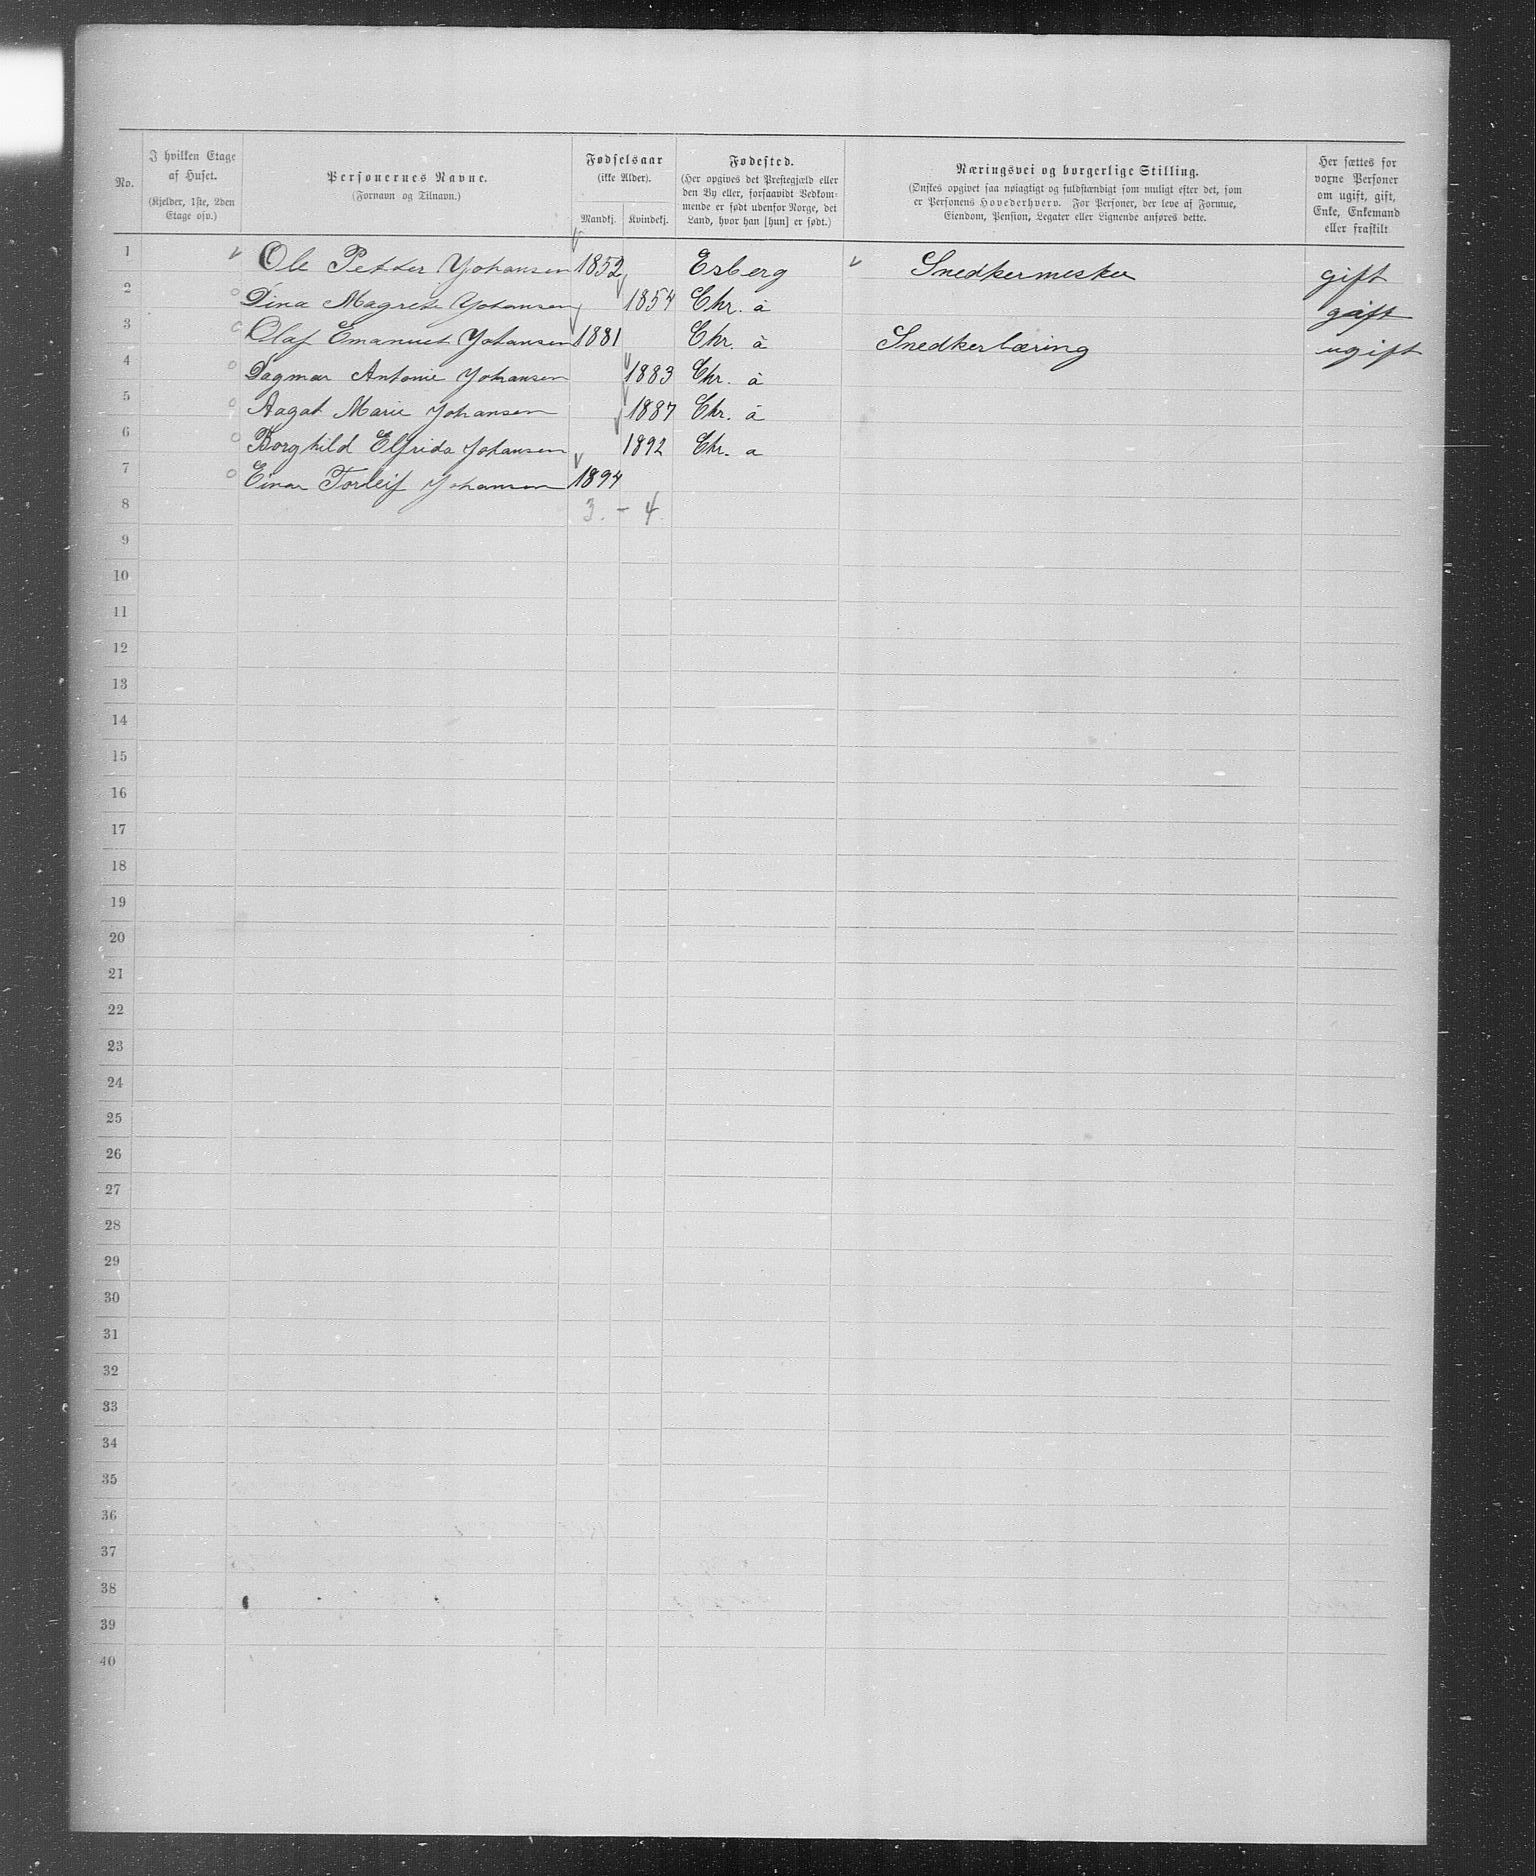 No.
I hvilken Etage af Huset.
(Kjelder, 1ste, 2den Etage osv.)
Personernes Navne.
(Fornavn og Tilnavn.)
Fødselsaar
(ikke Alder).
Mandkj. Kvindekj.
Fødested.
(Her opgives det Præstegjæld eller
den By eller, forsaavidt Vedkom-
mende er født udenfor Norge, det
Land, hvor han [hun] er født.)
Næringsvei og borgerlige Stilling.
(Ønskes opgivet saa nøiagtigt og fuldstændigt som muligt efter det, som
er Personens Hovederhverv. For Personer, der leve af Formue,
Eiendom, Pension, Legater eller Lignende anføres dette.
Her sættes for
voxne Personer
om ugift, gift,
Enke, Enkemand
eller fraskilt
1 Ole Petter Johansen 1852 Esberg Snedkermester gift
2 Dina Magrete Johansen 1854 Chr. a gift
3 Olaf Emanuel Johansen 1881 Chr. a Snedkerlæring ugift
4 Dagmar Antonie Johansen 1883 Chr. a
5 Aagat Marie Johansen 1887 Chr. a
6 Borghild Elfrida Johansen 1892 Chr. a
7 Einar Torleif Johansen 1894
8 3. - 4
9
10
11
12
13
14
15
16
17
18
19
20
21
22
23
24
25
26
27
28
29
30
31
32
33
34
35
36
37
38
39
40